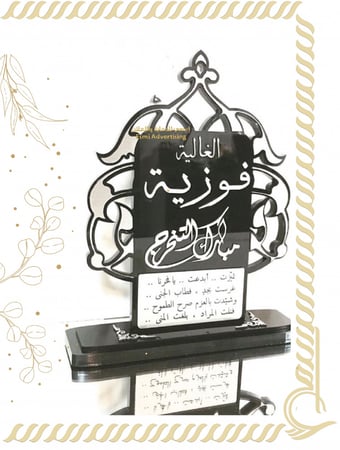 Advertising
الغالية
فوزية
مبارك التخرج
.. أبدعت .. يا فخرنا ..
غرست بجد ، فطاب الجنى ..
وشيدت بالعزم صرح الطموح ..
فنلت المراد ، بلغت المنى